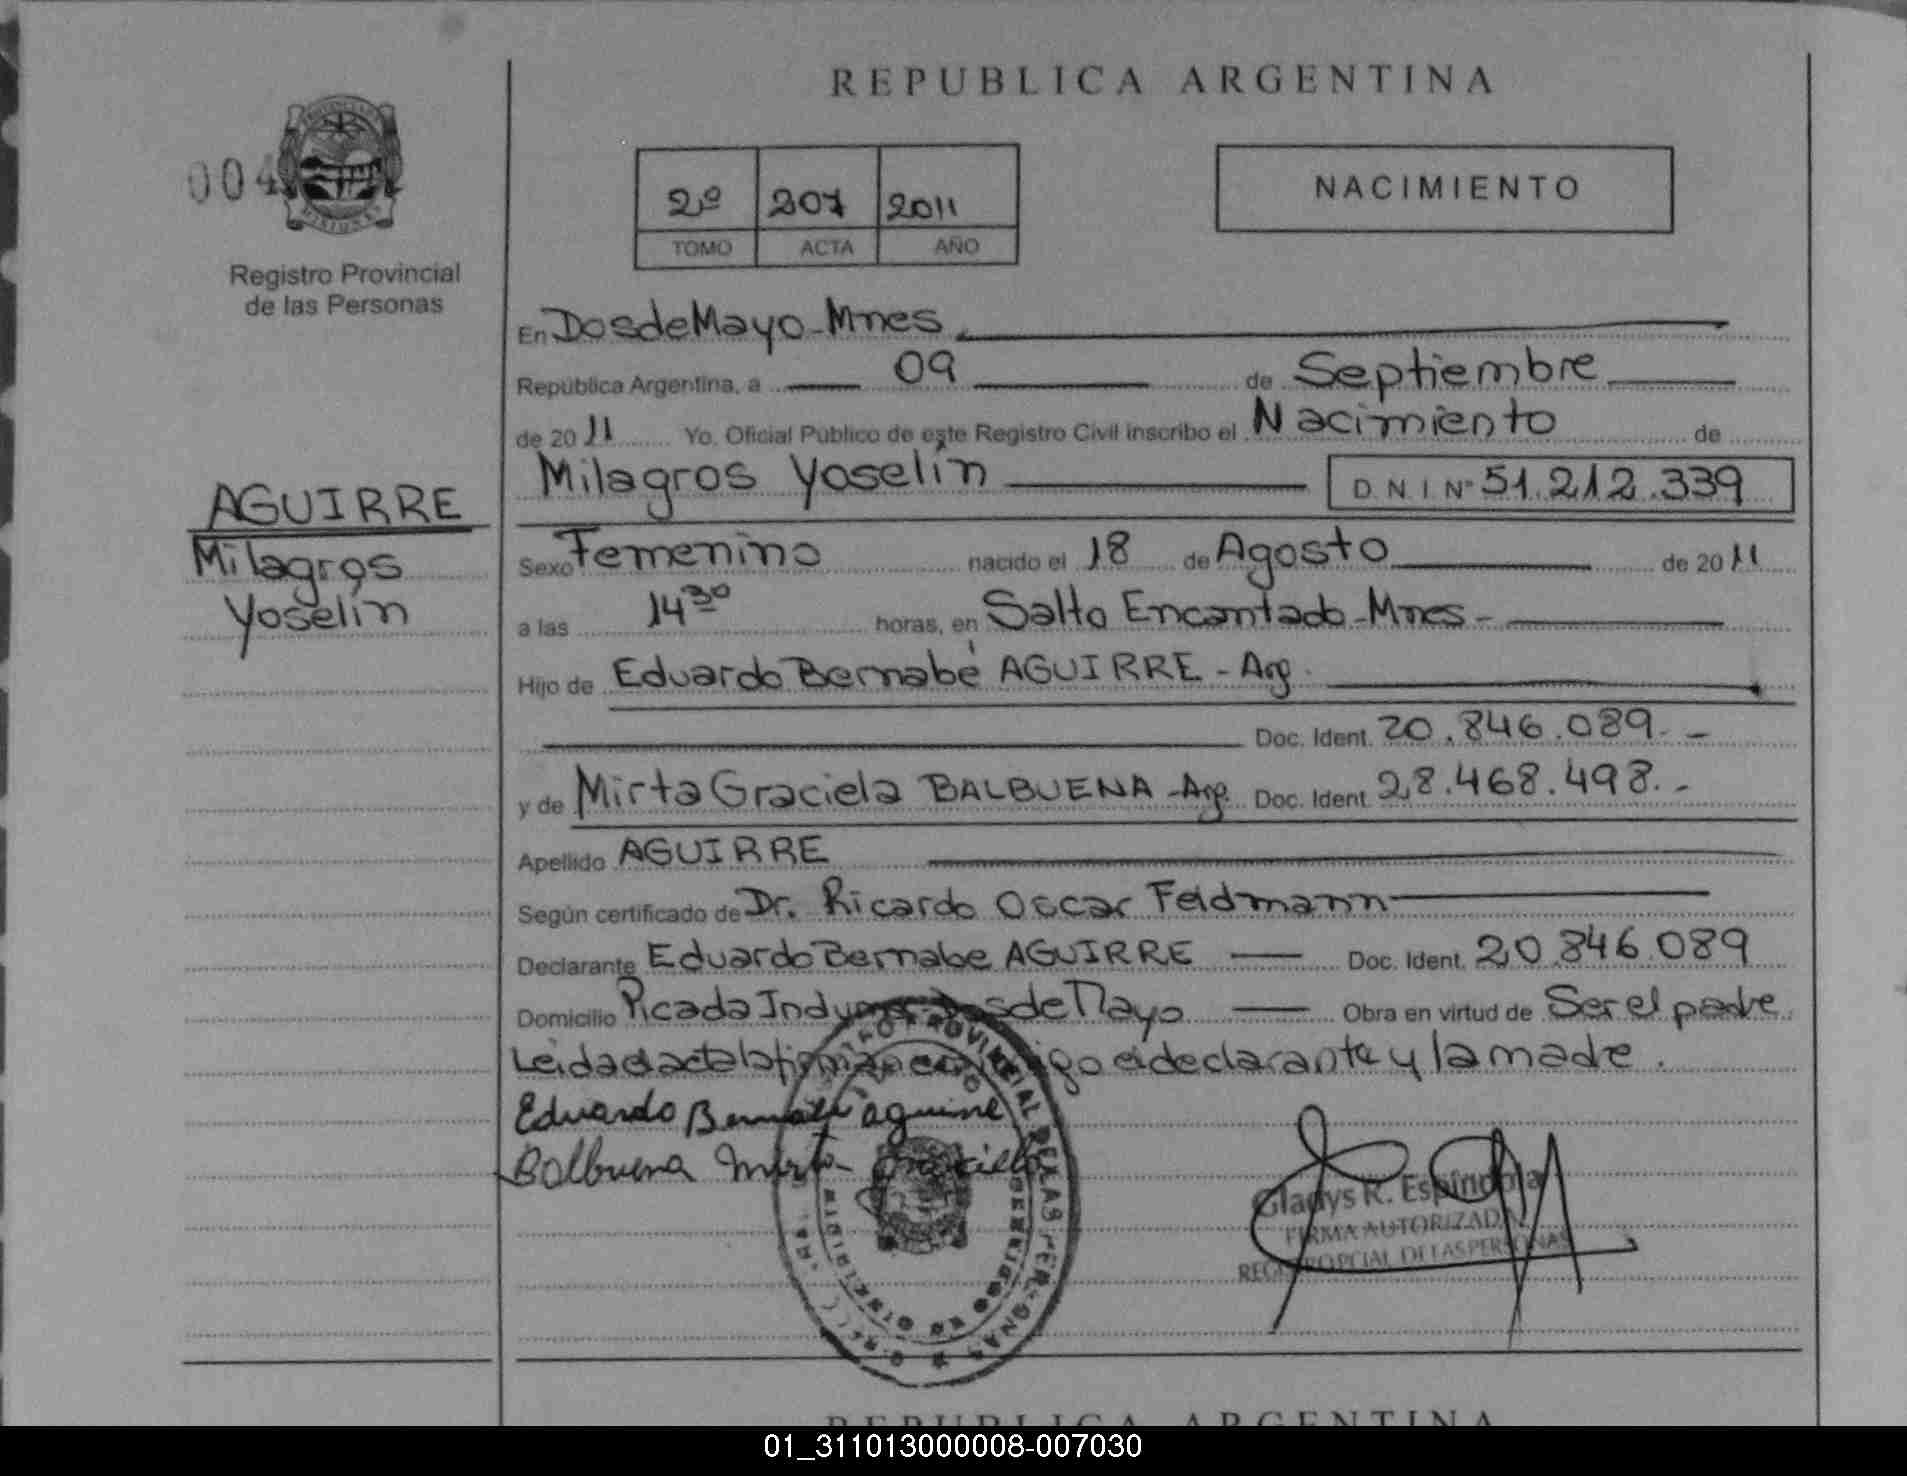 REPUBLICA ARGENTINA
004
Registro Provincial
de las Personas
2º 207 2011
TOMO ACTA AÑO
NACIMIENTO
En Dos de Mayo - Mnes
República Argentina, a 09 de Septiembre
de 2011 Yo. Oficial Público de este Registro Civil inscribo el Nacimiento de
Milagros Yoselín D N I Nº 51.212.339
AGUIRRE
Milagros
Yoselín
Sexo Femenino nacido el 18 de Agosto de 2011
a las 14 30 horas, en Salto Encantado - Mnes -
Hijo de Eduardo Bernabé AGUIRRE - Arg.
Doc. Ident. 20.846.089.-
y de Mirta Graciela BALBUENA - Arg. Doc. Ident 28.468.498.-
Apellido AGUIRRE
Según certificado de Dr. Ricardo Oscar Feldmann
Declarante Eduardo Bernabe AGUIRRE Doc. Ident. 20.846.089
Domicilio Picada Dos de Mayo Obra en virtud de Ser el padre
Leida el acta la firman el declarante y la madre.
Eduardo Bernabe aguirre
Balbuena Mirta Graciela
Gladys R. Espindola
FIRMA AUTORIZADA
REGISTRO PCIAL DE LAS PERSONAS
REPUBLICA ARGENTINA
01_311013000008-007030